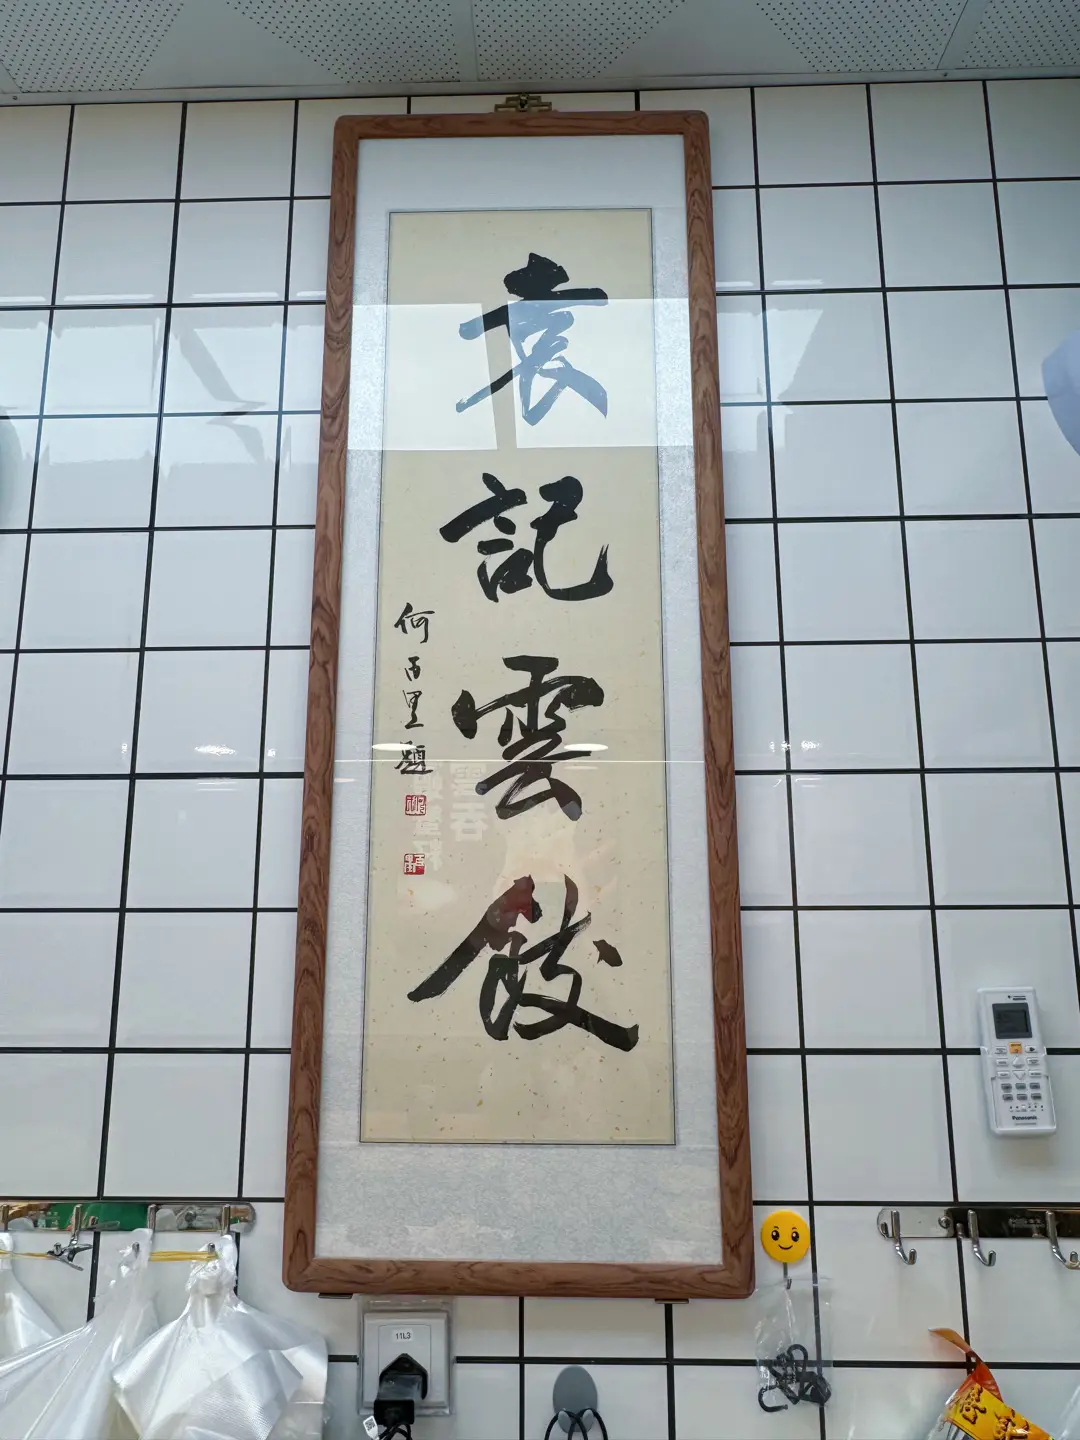 袁記雲餃
何百里題
11L3
Panasonic